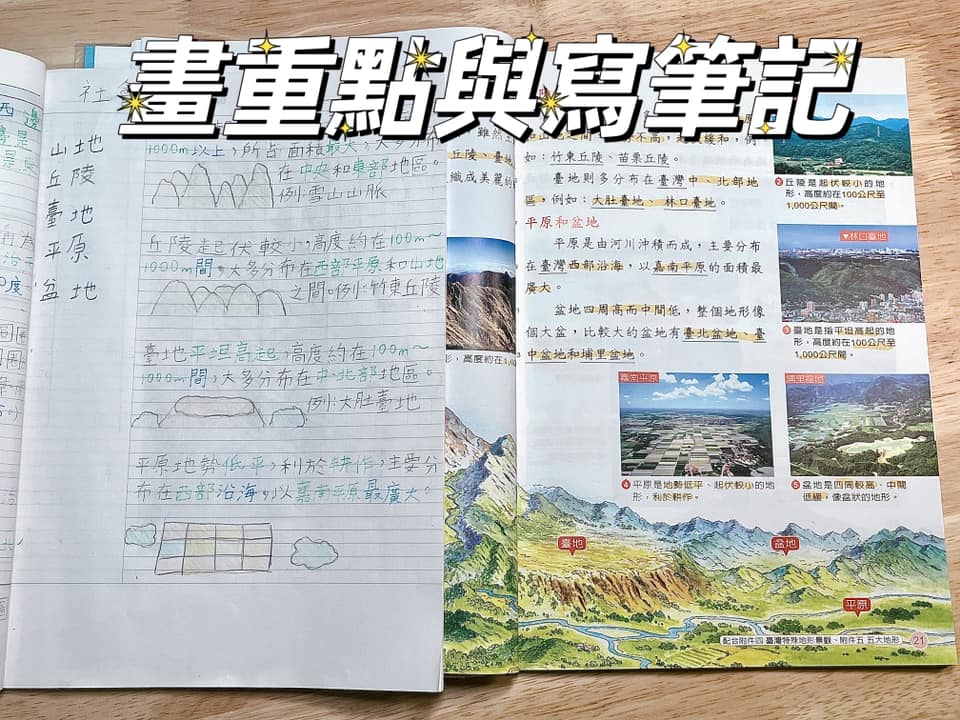 畫重點與寫筆記
社
山地
丘陵
臺地
平原
盆地
1000m以上,所占面積最大,大多分布
在中央和東部地區。
例:雪山山脈
丘陵起伏較小,高度約在100m~
1000m間,大多分布在西部平原和山地
之間。例:竹東丘陵
臺地平坦高起,高度約在100m~
1000m間,大多分布在中、北部地區。
例:大肚臺地
平原地勢低平,利於耕作,主要分
布在西部沿海,以嘉南平原最廣大。
雖然
丘陵、臺地
織成美麗的
如:竹東丘陵、苗栗丘陵。
臺地則多分布在臺灣中、北部地
區,例如:大肚臺地、林口臺地。
平原和盆地
平原是由河川沖積而成,主要分布
在臺灣西部沿海,以嘉南平原的面積最
廣大。
盆地四周高而中間低,整個地形像
個大盆,比較大的盆地有臺北盆地、臺
中盆地和埔里盆地。
2 丘陵是起伏較小的地
形,高度約在100公尺至
1,000公尺間。
▼林口臺地
3 臺地是指平坦高起的地
形,高度約在100公尺至
1,000公尺間。
嘉南平原
4 平原是地勢低平、起伏較小的地
形,利於耕作。
埔里盆地
5 盆地是四周較高、中間
低緩,像盆狀的地形。
臺地
盆地
平原
配合附件四 臺灣特殊地形景觀、附件五 五大地形
21